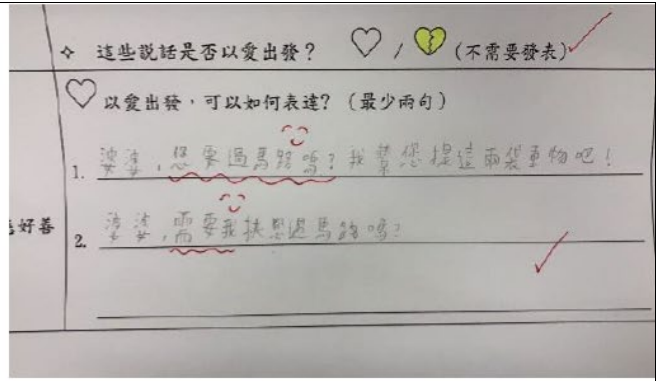 ✧ 這些說話是否以愛出發？ ♡ / 💔 (不需要發表)
♡ 以愛出發，可以如何表達？（最少兩句）
1. 婆婆，您要過馬路嗎？我幫您提這兩袋重物吧！
好善
2. 婆婆，需要我扶您過馬路嗎？